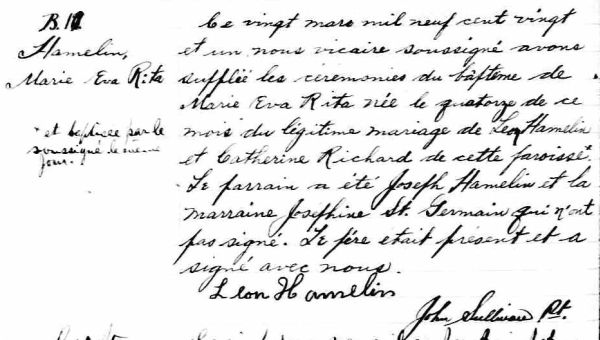 B. 11
Hamelin,
Marie Eva Rita
* et baptisée par le
soussigné le même
jour.
Ce vingt mars mil neuf cent vingt
et un nous vicaire soussigné avons
supplié les cérémonies du baptême de
Marie Eva Rita née le quatorze de ce
mois du légitime mariage de Leon Hamelin
et Catherine Richard de cette paroisse*
Le parrain a été Joseph Hamelin et la
marraine Josephine St. Germain qui n'ont
pas signé. Le père etait présent et a
signé avec nous.
Leon Hamelin
John Sullivan Pt.